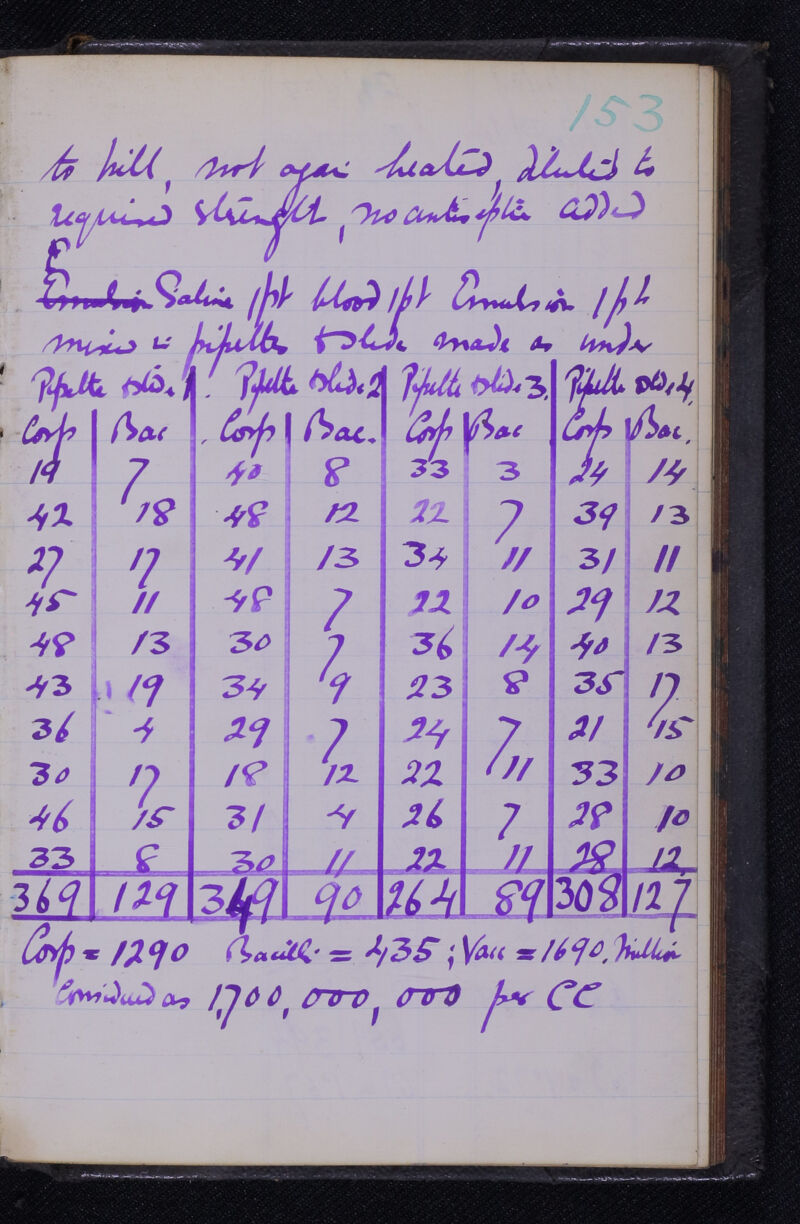 153
to kill, not again heated, diluted to
required strength, no antiseptic added
Emulsion Saline 1 pt blood 1 pt Emulsion 1 pt
mixed in pipettes & slide made as under
Pipette & slide 1. Pipette & slide 2 Pipette & slide 3. Pipette & slide 4.
Corp Bac. Corp Bac. Corp Bac Corp Bac.
19 7 40 8 33 3 24 14
42 18 48 12 22 7 39 13
27 17 41 13 34 11 31 11
45 11 48 7 22 10 29 12
48 13 30 7 36 14 40 13
43 19 34 9 23 8 35 17
36 4 29 7 24 7 21 15
30 17 18 12 22 11 33 10
46 15 31 4 26 7 28 10
33 8 30 11 22 11 28 12
369 129 349 90 264 89 308 127
Corp = 1290 Bacilli = 435; Vacc = 1690. Million
Considered as 1,700,000,000 per CC